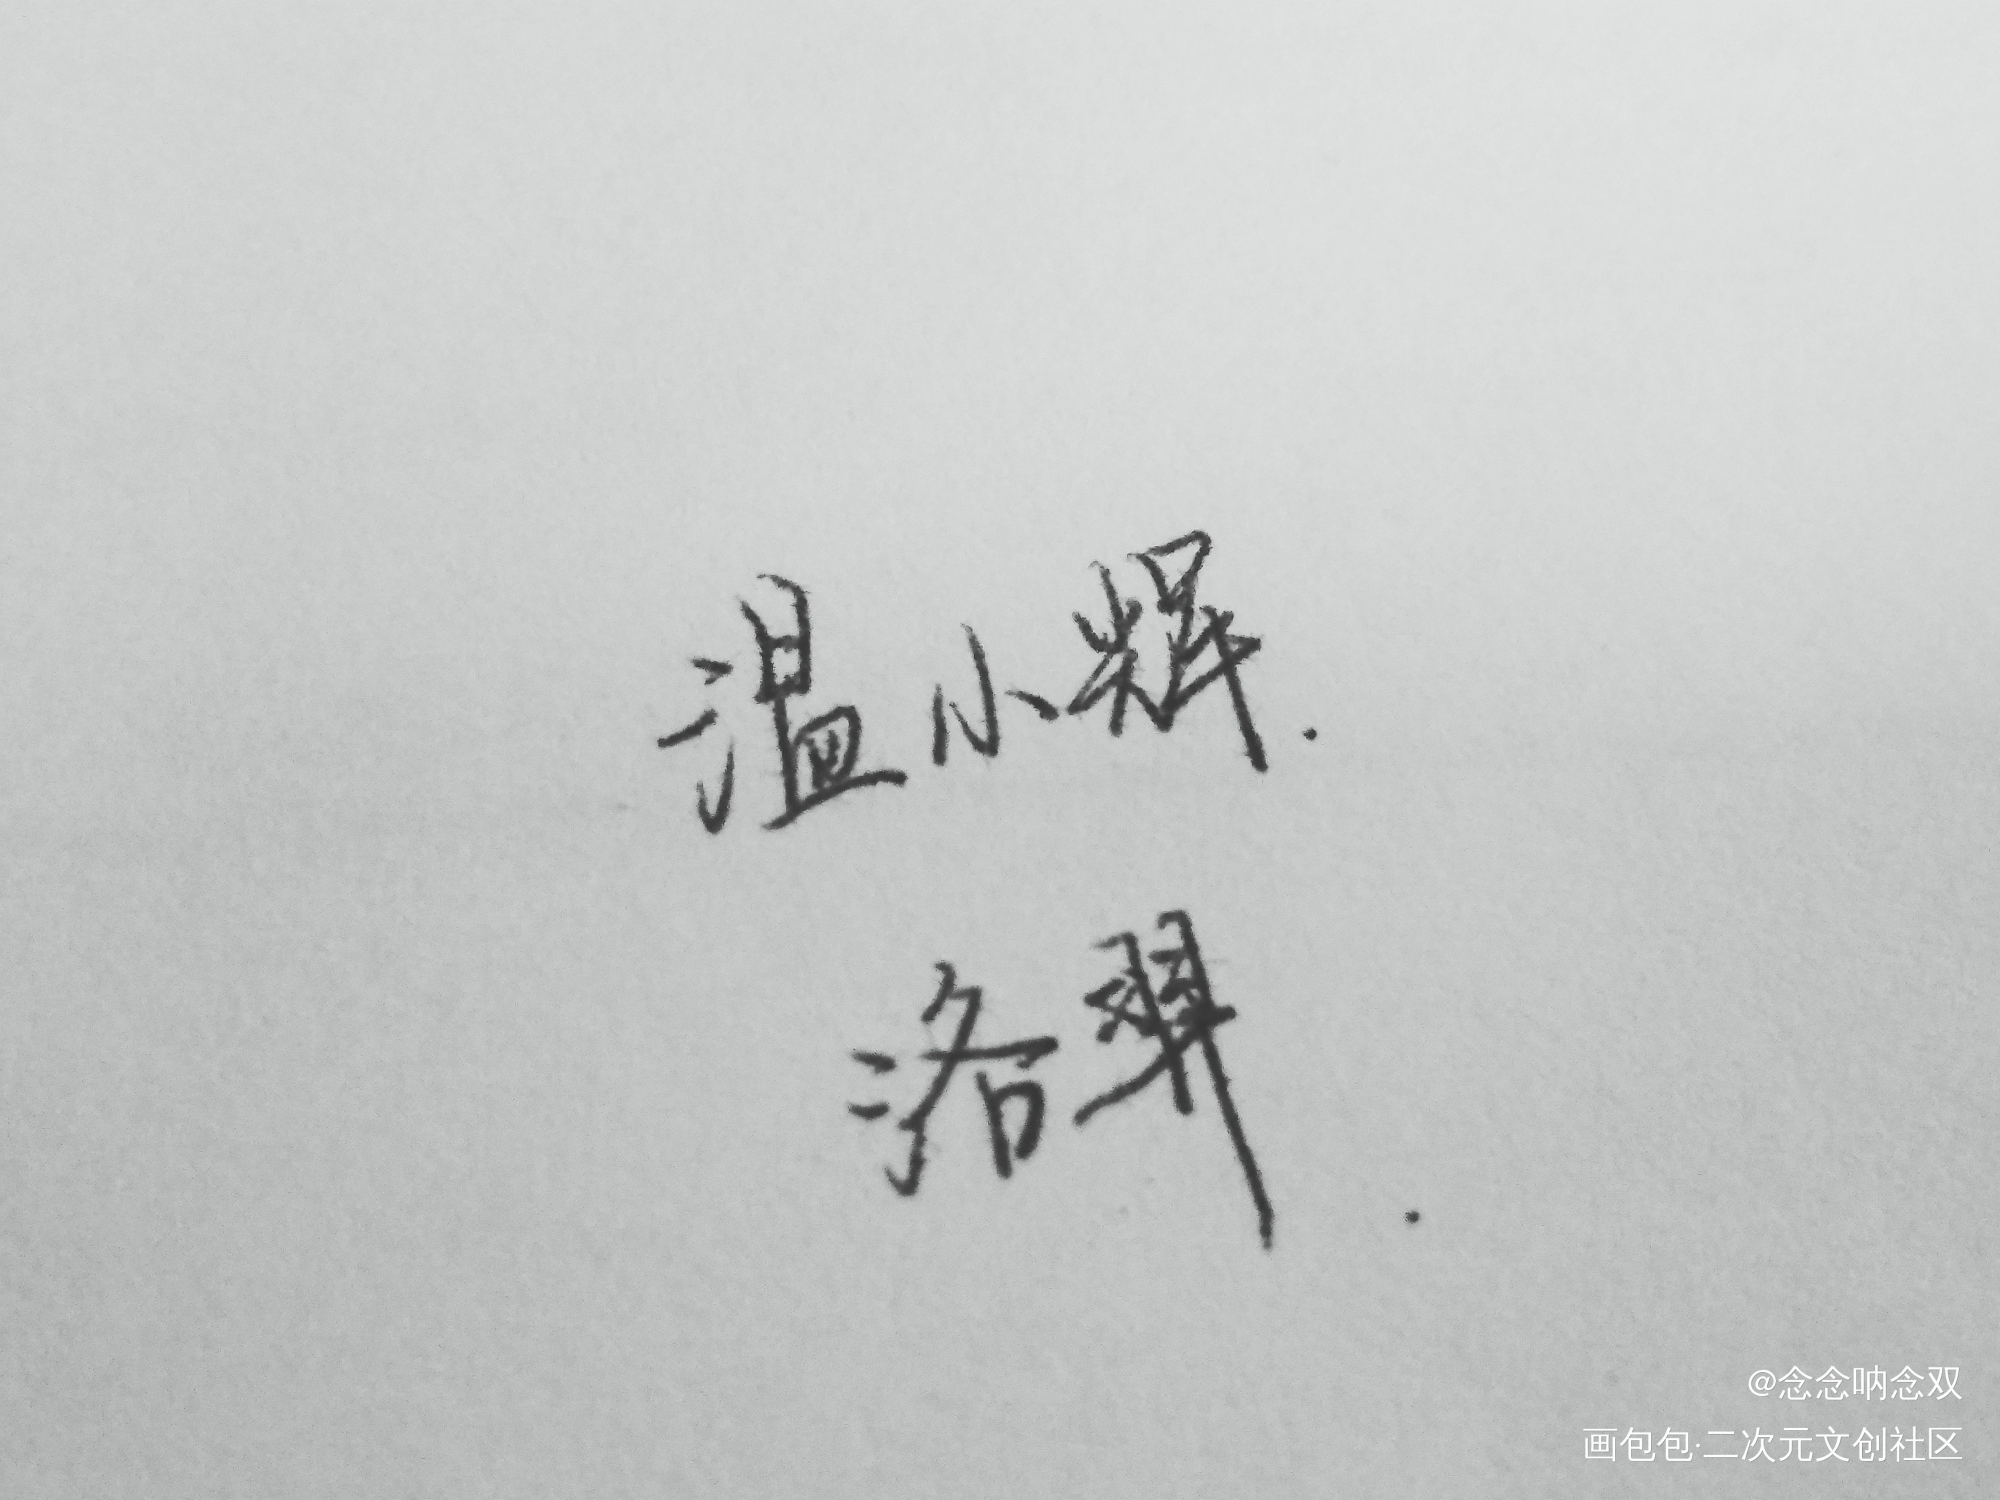 温小辉.
洛羿.
@念念呐念双
画包包·二次元文创社区